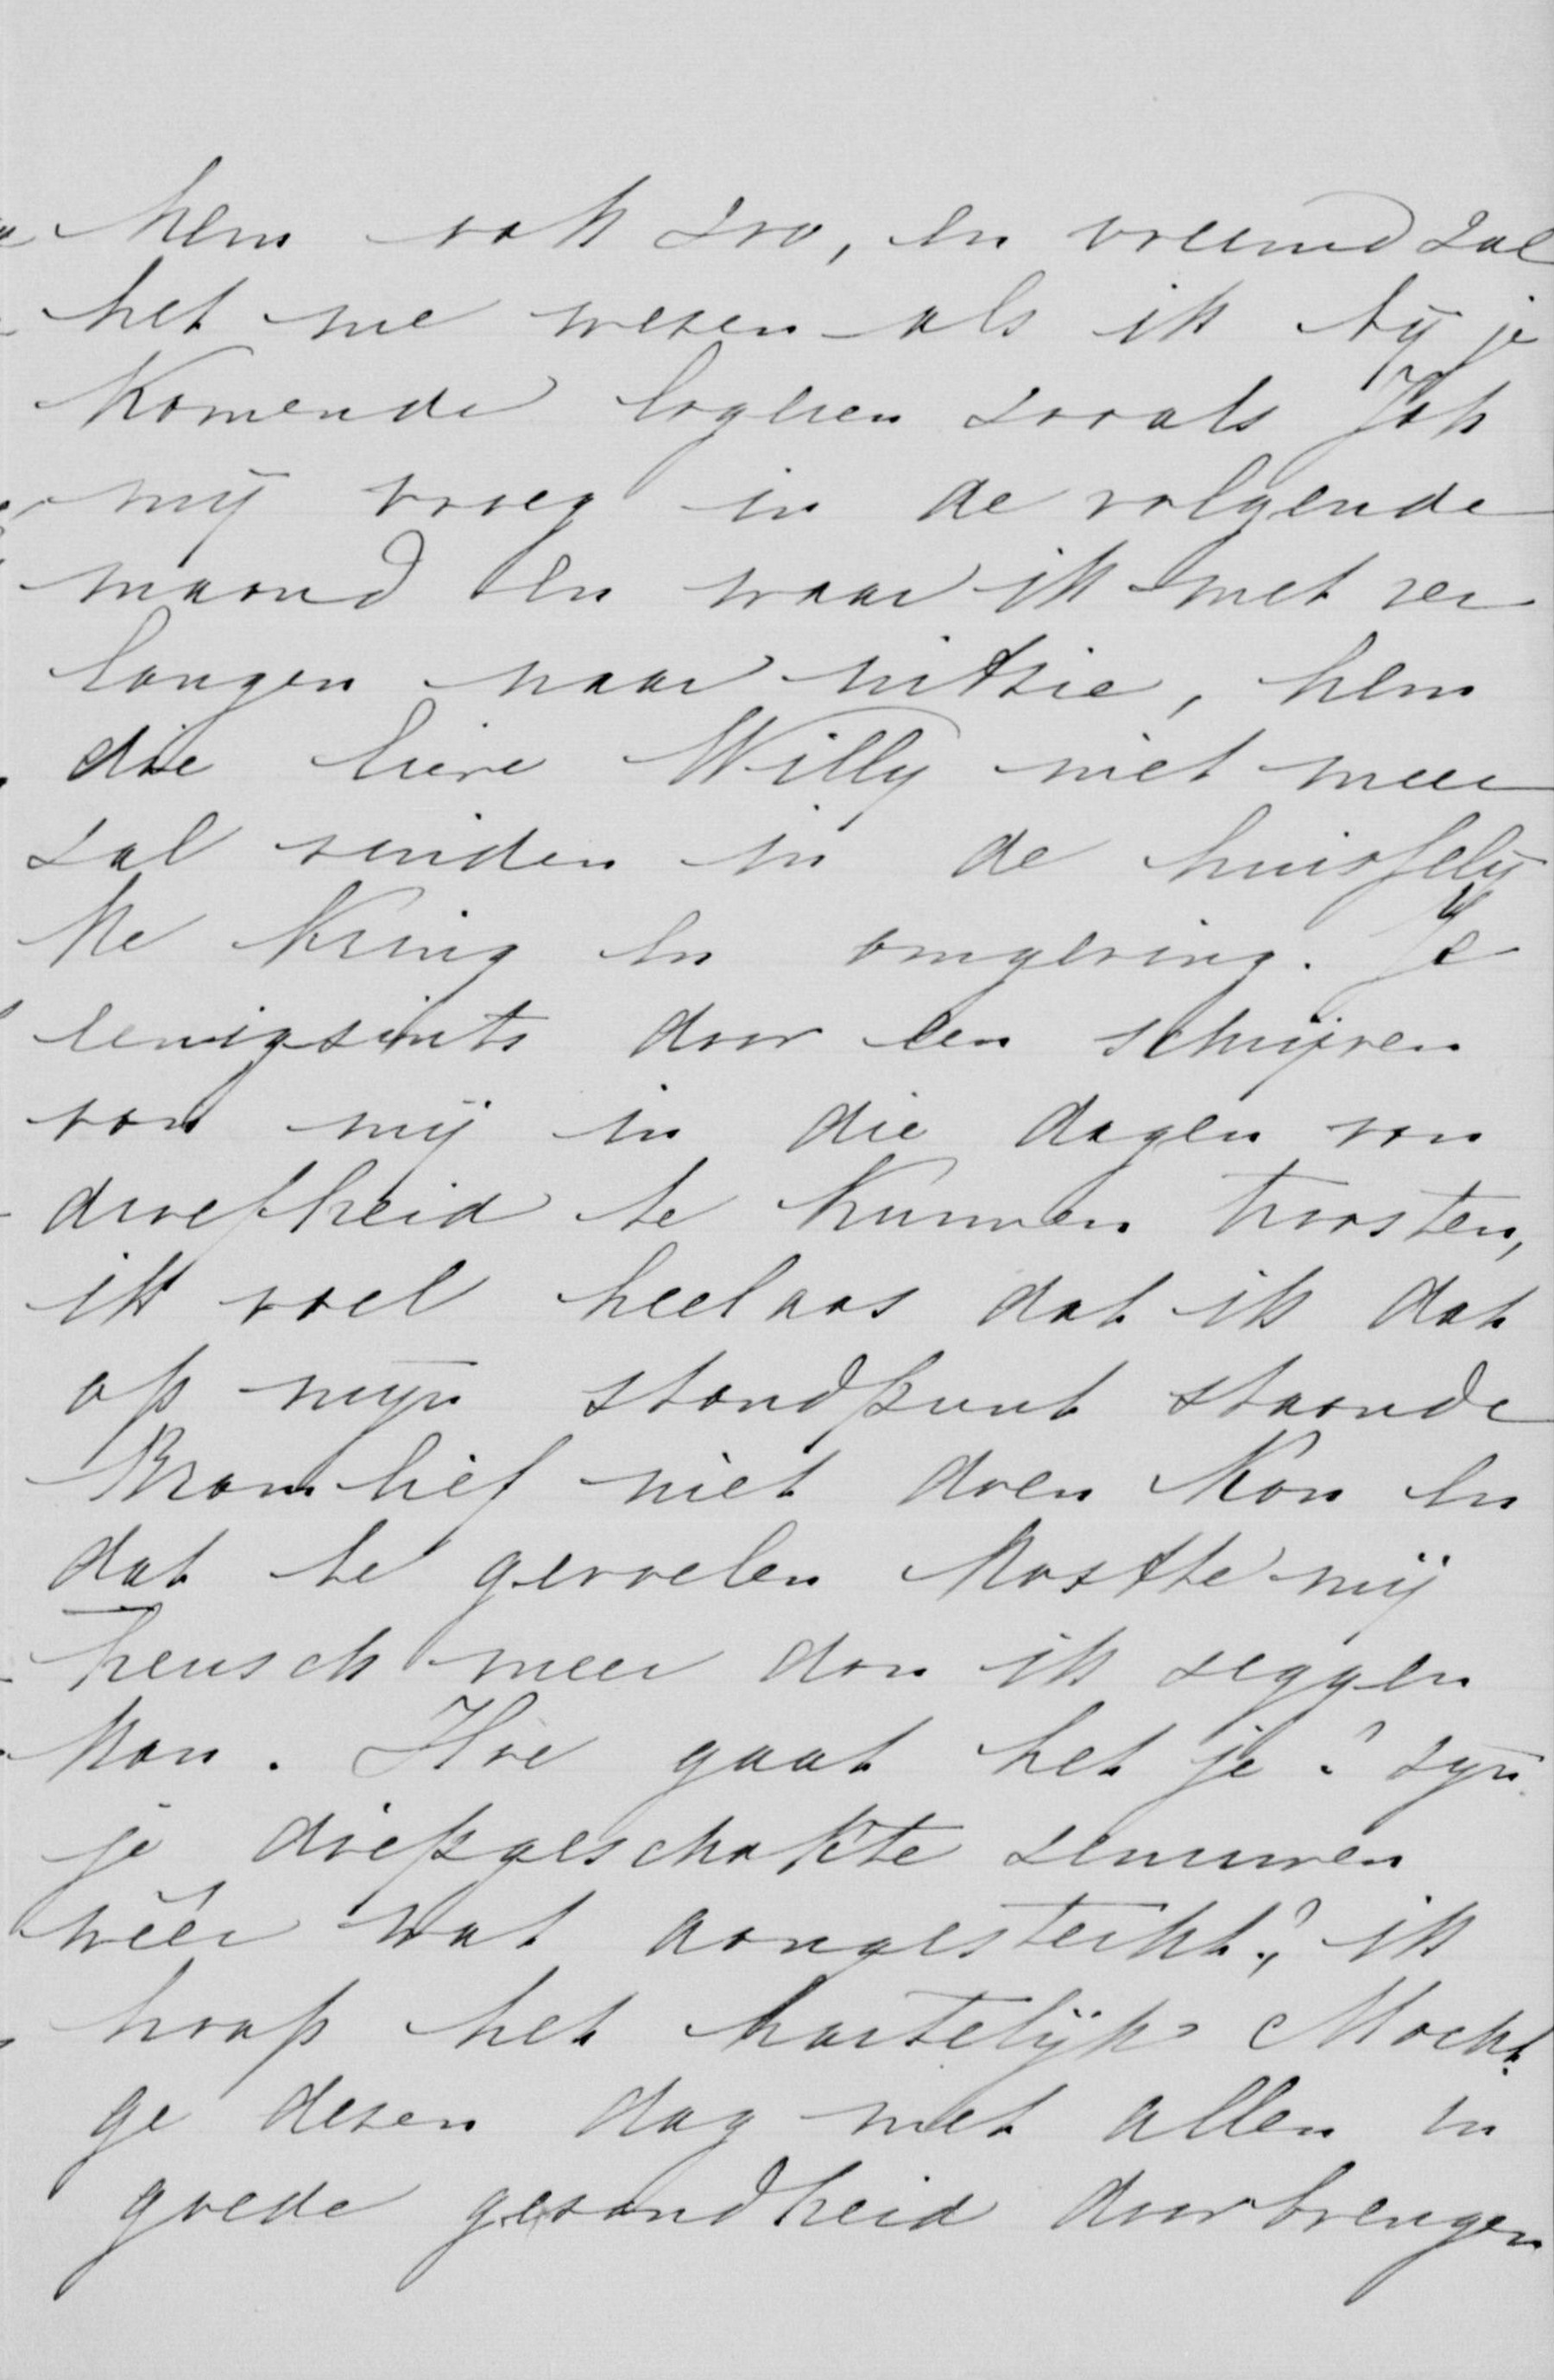 hem ook zoo, en vreemd zal
het me wezen als ik bij je
komende logeren zooals Joh
mij vroeg in de volgende
maand en waar ik met ver
langen naar uitzie, hem
die lieve Willy niet meer
zal vinden in de huisselij
ke kring en omgeving. Je
eenigzints door een schrijven
van mij in die dagen van
droefheid te kunnen troosten,
ik voel heelaas dat ik dat
op mijn standpunt staande
Bram lief niet doen kon en
dat te gevoelen kostte mij
heusch meer dan ik zeggen
kan. Hoe gaat het je? zijn
je diepgeschokte zenuwen
wéér wat aangesterkt? ik
hoop het hartelijk Mocht
ge dezen dag met allen in
goede gezondheid doorbrengen